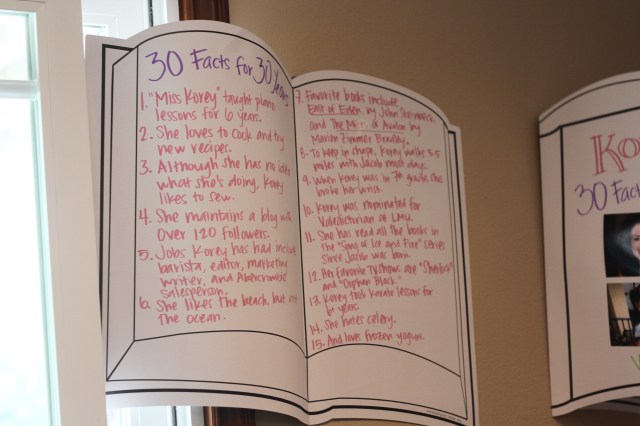 30 Facts for 30 Years
1. "Miss Korey" taught piano
lessons for 6 years.
2. She loves to cook and try
new recipes.
3. Although she has no idea
what she's doing, Korey
likes to sew.
4. She maintains a blog with
over 120 followers.
5. Jobs Korey has had include
barista, editor, marketing
writer, and Abercrombie
salesperson.
6. She likes the beach, but not
the ocean.
7. Favorite books include
East of Eden by John Steinbeck
and The Mists of Avalon by
Marion Zimmer Bradley.
8. To keep in shape, Korey walks 3-5
miles with Jacob most days.
9. When Korey was in 7th grade, she
broke her wrist.
10. Korey was nominated for
Valedictorian at LMU.
11. She has read all the books in
the "Song of Ice and Fire" series
since Jacob was born.
12. Her favorite TV shows are "Sherlock"
and "Orphan Black."
13. Korey took karate lessons for
6 years.
14. She hates celery.
15. And loves frozen yogurt.
Ko
30 Facts